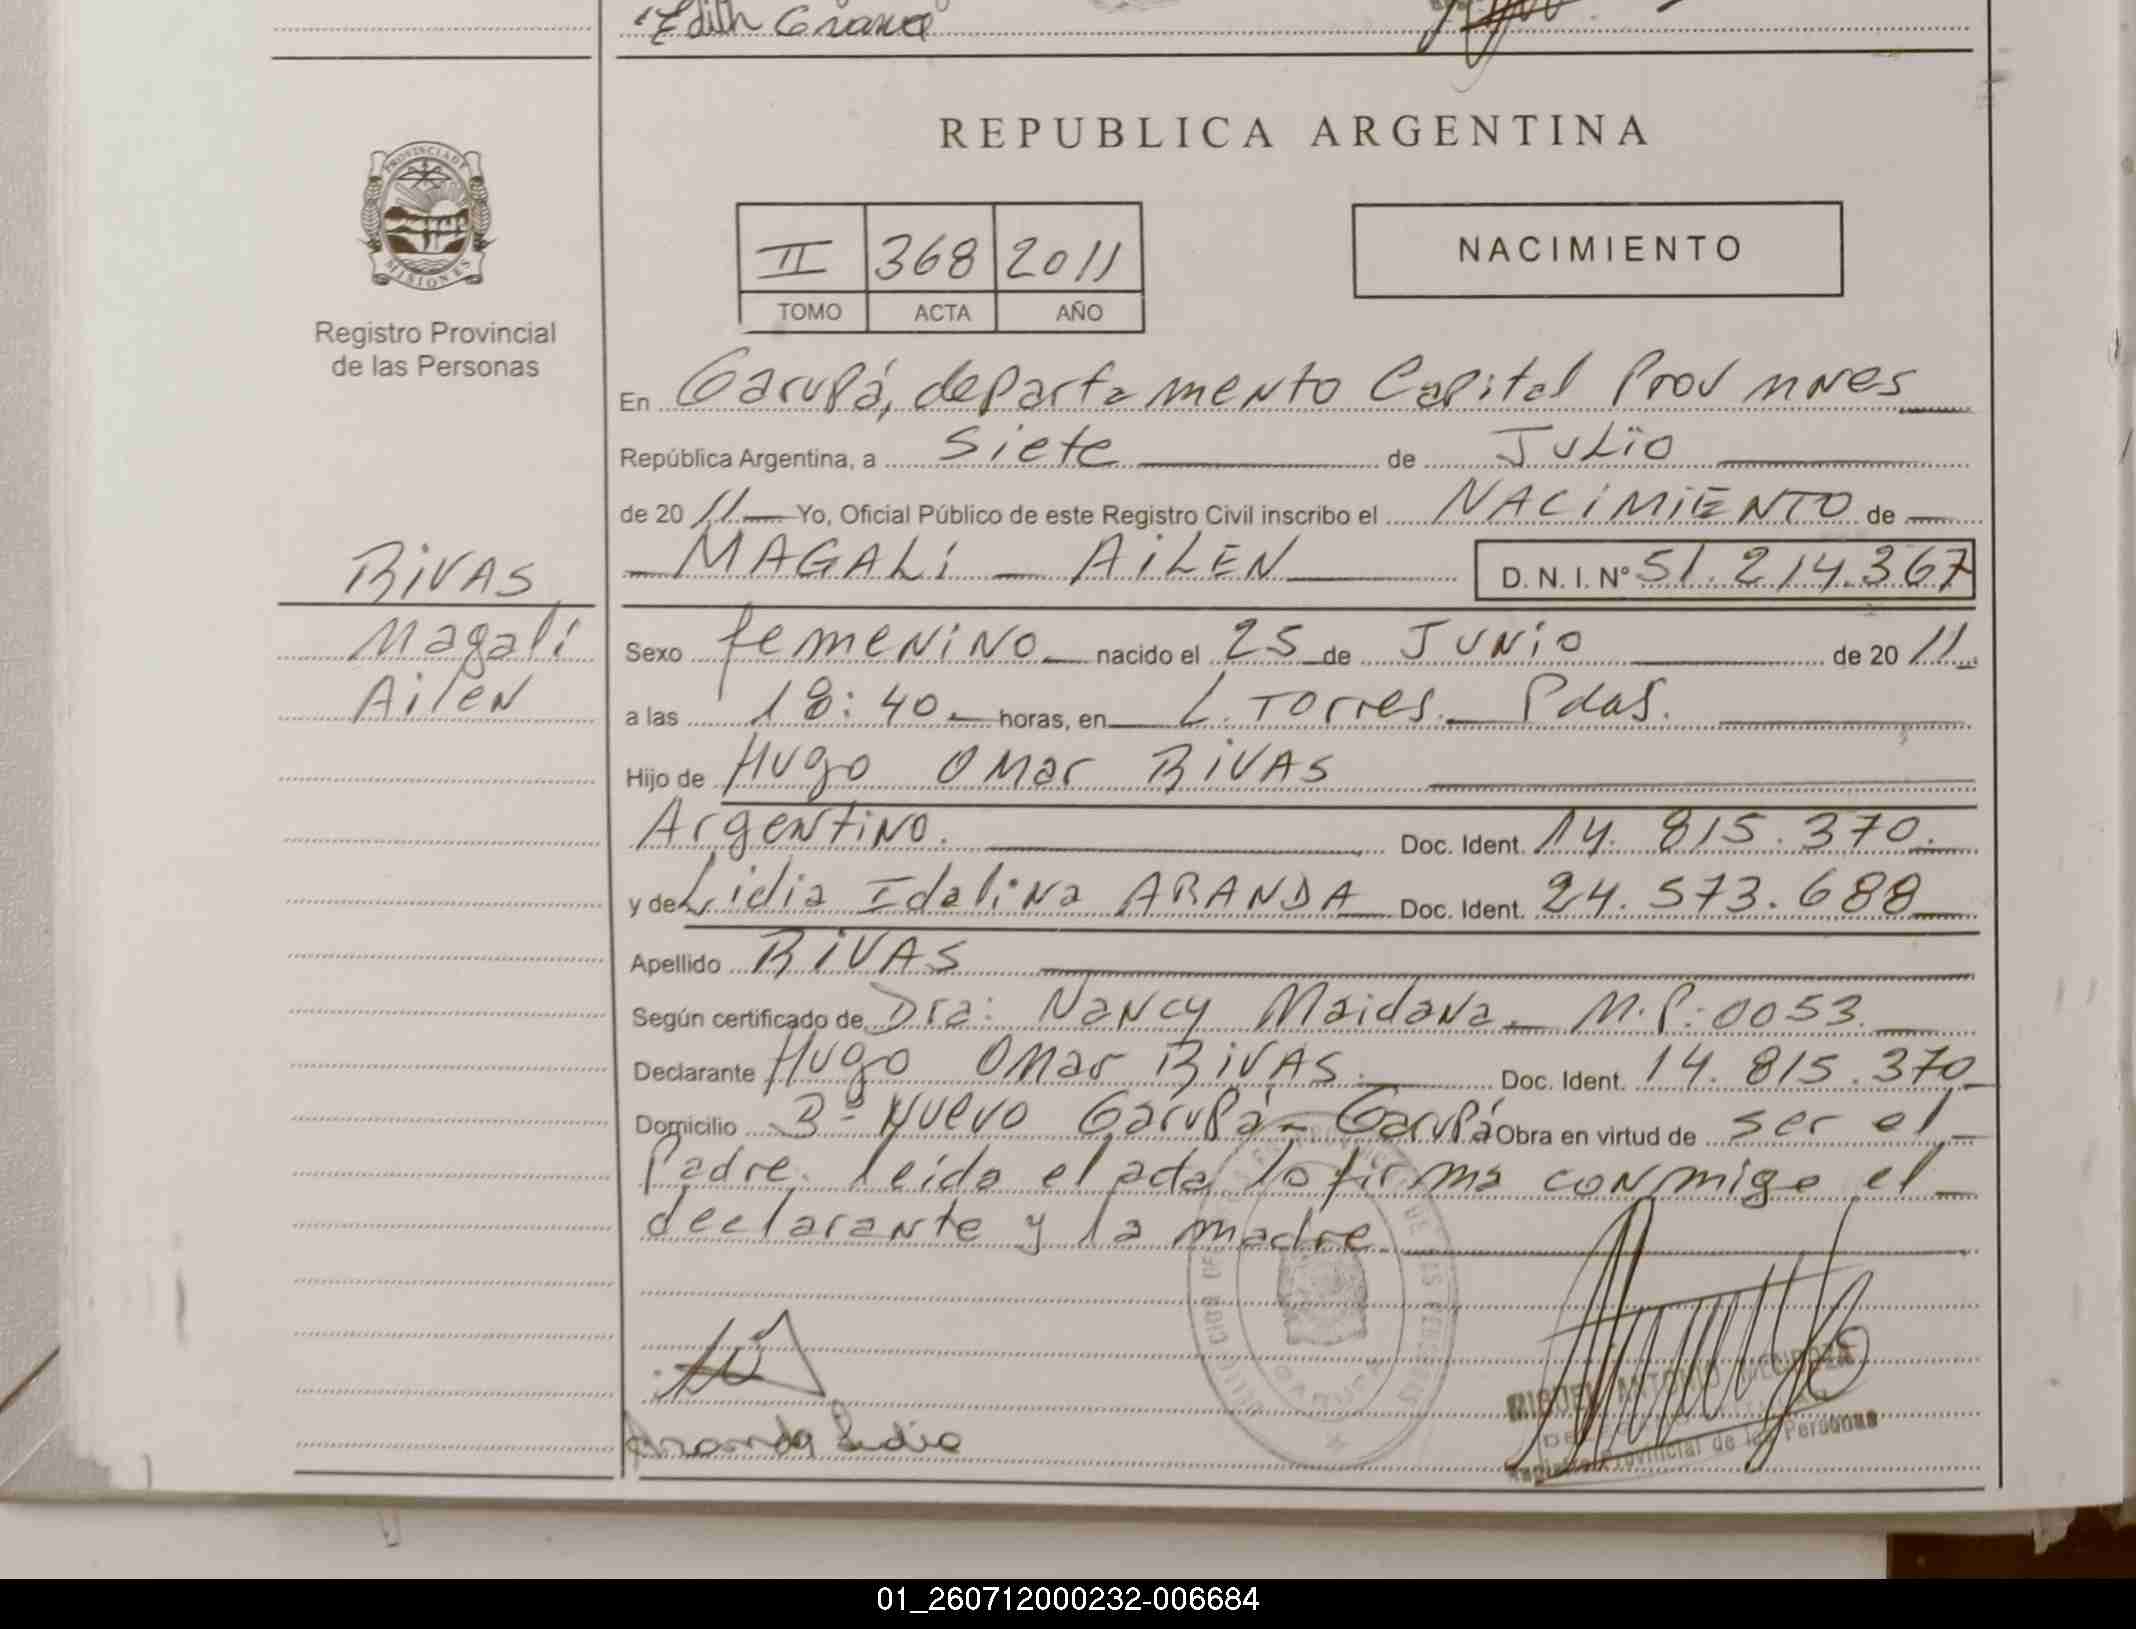 Edith Grance
REPUBLICA ARGENTINA
PROVINCIA DE
MISIONES
Registro Provincial
de las Personas
II 368 2011
TOMO ACTA AÑO
NACIMIENTO
En Garupá, departamento Capital Prov mnes
República Argentina, a siete de Julio
de 2011 Yo, Oficial Público de este Registro Civil inscribo el NACIMIENTO de
RIVAS
Magalí
Ailen
MAGALí AiLEN D. N. I. Nº 51.214.367
Sexo femenino nacido el 25 de Junio de 2011
a las 18:40 horas, en L. Torres. Pdas.
Hijo de Hugo Omar RIVAS
Argentino. Doc. Ident. 14.815.370.
y de Lidia Idalina ARANDA Doc. Ident. 24.573.688
Apellido RIVAS
Según certificado de Dra: Nancy Maidana. M.P.: 0053.
Declarante Hugo Omar RIVAS. Doc. Ident. 14.815.370
Domicilio Bº Nuevo Garupá - Garupá Obra en virtud de ser el
Padre. leida el acta lo firma conmigo el
declarante y la madre
Aranda Lidia
MIGUEL ANTONIO
Registro Provincial de las Personas
01_260712000232-006684